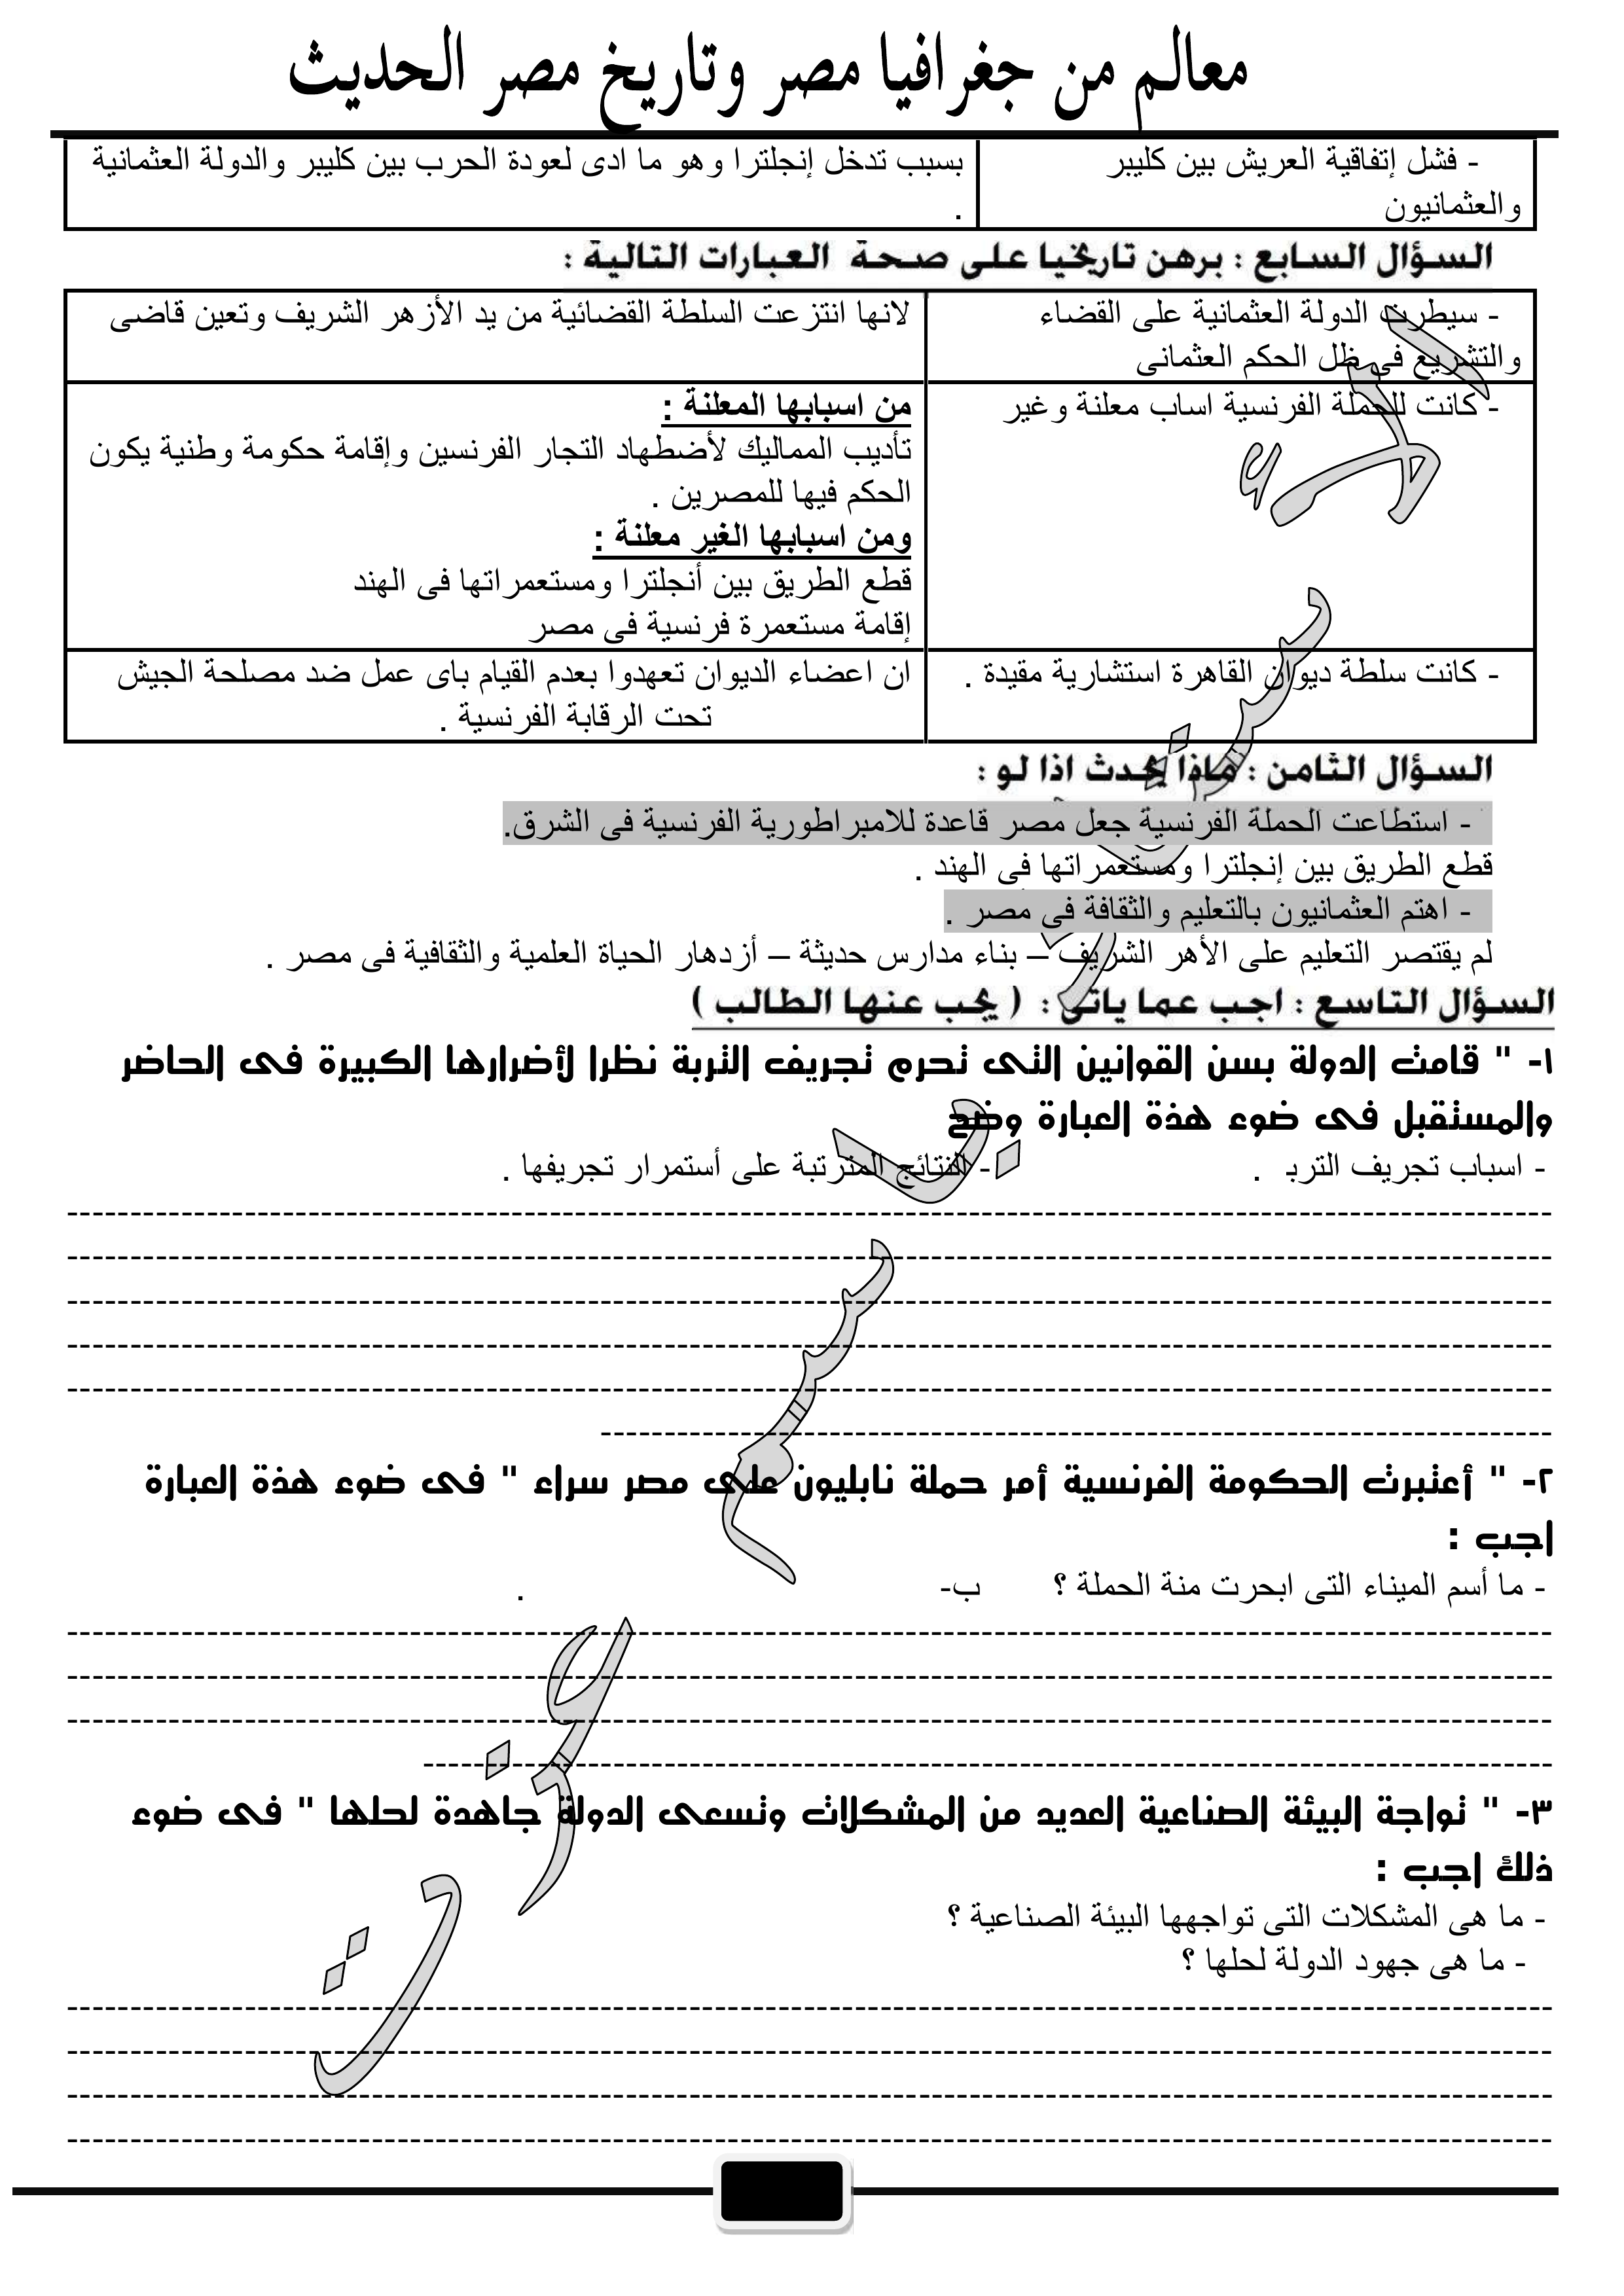 معالم من جغرافيا مصر وتاريخ مصر الحديث
- فشل إتفاقية العريش بين كليبر
والعثمانيون
بسبب تدخل إنجلترا وهو ما ادى لعودة الحرب بين كليبر والدولة العثمانية
.
السؤال السابع : برهن تاريخيا على صحة العبارات التالية :
- سيطرت الدولة العثمانية على القضاء
والتشريع فى ظل الحكم العثمانى
لانها انتزعت السلطة القضائية من يد الأزهر الشريف وتعين قاضى
- كانت للحملة الفرنسية اساب معلنة وغير
من اسبابها المعلنة :
تأديب المماليك لأضطهاد التجار الفرنسين وإقامة حكومة وطنية يكون
الحكم فيها للمصرين .
ومن اسبابها الغير معلنة :
قطع الطريق بين أنجلترا ومستعمراتها فى الهند
إقامة مستعمرة فرنسية فى مصر
- كانت سلطة ديوان القاهرة استشارية مقيدة .
ان اعضاء الديوان تعهدوا بعدم القيام باى عمل ضد مصلحة الجيش
تحت الرقابة الفرنسية .
السؤال الثامن : ماذا يحدث اذا لو :
- استطاعت الحملة الفرنسية جعل مصر قاعدة للامبراطورية الفرنسية فى الشرق.
قطع الطريق بين إنجلترا ومستعمراتها فى الهند .
- اهتم العثمانيون بالتعليم والثقافة فى مصر .
لم يقتصر التعليم على الأهر الشريف – بناء مدارس حديثة – أزدهار الحياة العلمية والثقافية فى مصر .
السؤال التاسع : اجب عما ياتى : ( يجب عنها الطالب )
١- " قامت الدولة بسن القوانين التى تحرم تجريف التربة نظرا لأضرارها الكبيرة فى الحاضر
والمستقبل فى ضوء هذة العبارة وضح
- اسباب تجريف التربـ . - النتائج المترتبة على أستمرار تجريفها .
٢- " أعتبرت الحكومة الفرنسية أمر حملة نابليون على مصر سراء " فى ضوء هذة العبارة
اجب :
- ما أسم الميناء التى ابحرت منة الحملة ؟ ب- .
٣- " تواجة البيئة الصناعية العديد من المشكلات وتسعى الدولة جاهدة لحلها " فى ضوء
ذلك اجب :
- ما هى المشكلات التى تواجهها البيئة الصناعية ؟
- ما هى جهود الدولة لحلها ؟